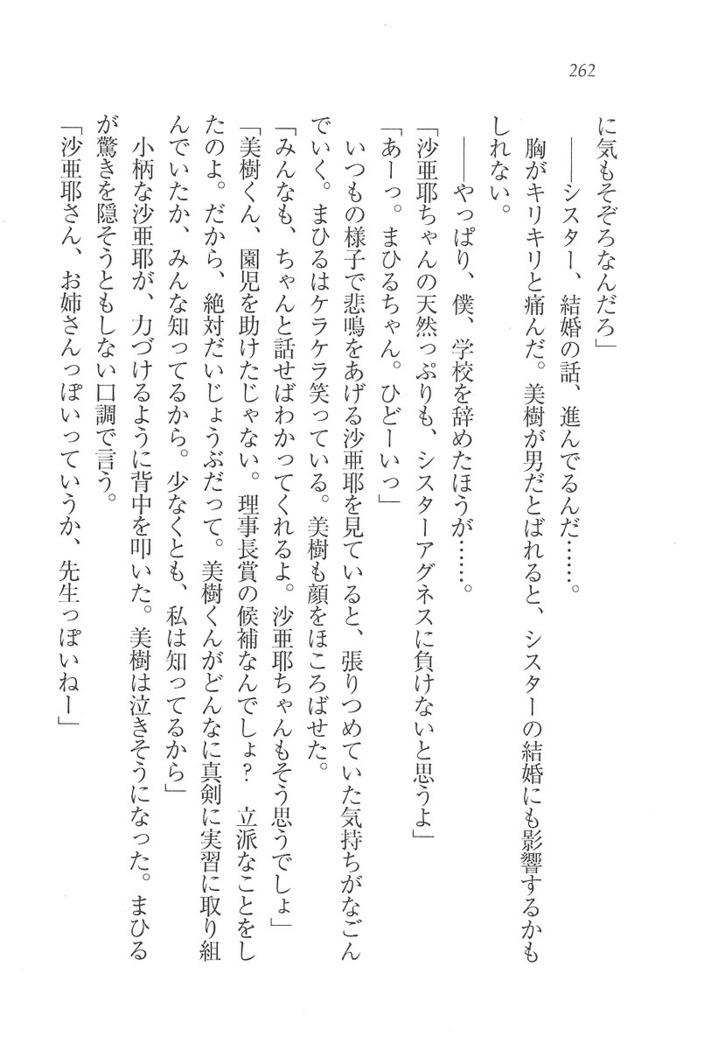 262
に気もそぞろなんだろ」
――シスター、結婚の話、進んでるんだ……。
胸がキリキリと痛んだ。美樹が男だとばれると、シスターの結婚にも影響するかも
しれない。
――やっぱり、僕、学校を辞めたほうが……。
「沙亜耶ちゃんの天然っぷりも、シスターアグネスに負けないと思うよ」
「あーっ。まひるちゃん。ひどーいっ」
いつもの様子で悲鳴をあげる沙亜耶を見ていると、張りつめていた気持ちがなごん
でいく。まひるはケラケラ笑っている。美樹も顔をほころばせた。
「みんなも、ちゃんと話せばわかってくれるよ。沙亜耶ちゃんもそう思うでしょ」
「美樹くん、園児を助けたじゃない。理事長賞の候補なんでしょ?　立派なことをし
たのよ。だから、絶対だいじょうぶだって。美樹くんがどんなに真剣に実習に取り組
んでいたか、みんな知ってるから。少なくとも、私は知ってるから」
小柄な沙亜耶が、力づけるように背中を叩いた。美樹は泣きそうになった。まひる
が驚きを隠そうともしない口調で言う。
「沙亜耶さん、お姉さんっぽいっていうか、先生っぽいねー」